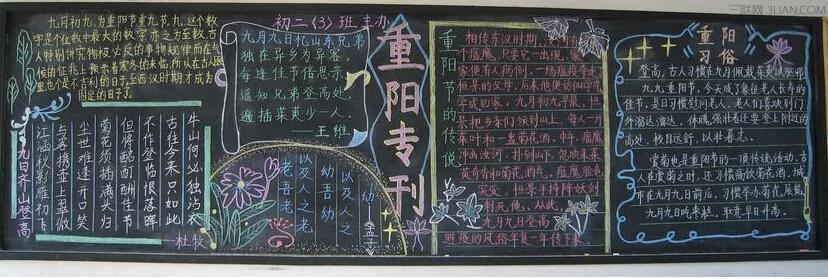 三联网 3LIAN.COM
初二(3)班 主办
九月初九,为重阳节重九节,九,这个数
字是个位数中最大的数字,亦之为至数,古
人特别讲究物极必反的事物规律而在气
候的征兆上
预示着寒冬的来临,所以在古人眼
里也不是个吉利的日子,至西汉时期,才成为
固定的日子了。
九日齐山登高
江涵秋影雁初飞
与客携壶上翠微
尘世难逢开口笑
菊花须插满头归
但将酩酊酬佳节
不作登临恨落晖
古往今来只如此
牛山何必独沾衣
——杜牧
九月九日忆山东兄弟
独在异乡为异客,
每逢佳节倍思亲。
遥知兄弟登高处,
遍插茱萸少一人。
——王维
老吾老
以及人之老
幼吾幼
以及人之
幼
——《孟子》
重阳专刊
重阳节的传说
相传东汉时期,
个瘟魔,只要它一出现,家
家便有人病倒,一场瘟疫夺走
恒景的父母,
学成回家,九月初九早晨,恒
景把乡亲们领到山上,每人一片
茱叶和一盅菊花酒。中午,瘟魔
冲出汝河,扑到山下,忽然来
茱萸香和菊花酒气,瘟魔脸色
突变,恒景手持降妖剑
刺死他,从此,
九月九日登高
避疫的风俗年复一年传下来
重阳
习俗
登高,古人习惯在九月佩戴茱萸以驱邪
九九重阳节,今天成了象征老人长寿的
佳节,是日习惯慰问老人。老人们喜欢到门
外溜达溜达,体魄强壮者还要登上附近的
高处,极目远舒,以壮着志。
赏菊也是重阳节的一项传统活动,古
人在赏菊之时,还习惯痛饮菊花酒,城
市在九月九日前后,习惯举办菊花展览
九月九日吃米糕,取意早日升高。